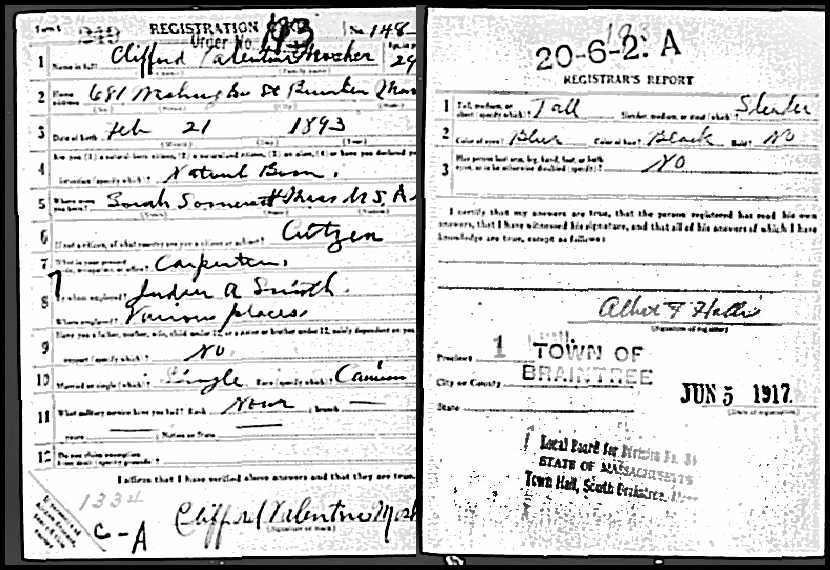 Form 1 REGISTRATION No. 148
Order No. 193
1 Name in full Clifford Valentine Mosher 24
(Family name)
2 Home address 681 Washington St Braintree Mass
(No.) (Street) (City)
3 Date of birth Feb 21 1893
(Month) (Day) (Year)
4 Are you (1) a natural-born citizen, (2) a naturalized citizen, (3) an alien, (4) or have you declared your
intention (specify which)? Natural Born.
5 Where were you born? South Somerset Mass U.S.A.
(Town) (State) (Nation)
6 If not a citizen, of what country are you a citizen or subject? Citizen
7 What is your present trade, occupation, or office? Carpenter.
8 By whom employed? A Smith.
Where employed? Various places
9 Have you a father, mother, wife, child under 12, or a sister or brother under 12, solely dependent on you
support (specify which)? No
10 Married or single (which)? Single Race (specify which)?
11 What military service have you had? Rank None ; branch
years ; Nation or State
12 Do you claim exemption from draft (specify grounds)?
I affirm that I have verified above answers and that they are true.
1334
C-A
Clifford Valentine Mosh
(Signature or mark)
20-6-2. A
REGISTRAR'S REPORT
1 Tall, medium, or short (specify which)? Tall Slender, medium, or stout (which)? Slender
2 Color of eyes? Blue Color of hair? Black Bald? No
3 Has person lost arm, leg, hand, foot, or both
eyes, or is he otherwise disabled (specify)? No
I certify that my answers are true, that the person registered has read his own
answers, that I have witnessed his signature, and that all of his answers of which I have
knowledge are true, except as follows:
Albert F Hollis
(Signature of registrar)
Precinct 1 TOWN OF
City or County BRAINTREE
State
JUN 5 1917.
(Date of registration)
Local Board for Division No.
STATE OF MASSACHUSETTS
Town Hall, South Braintree,